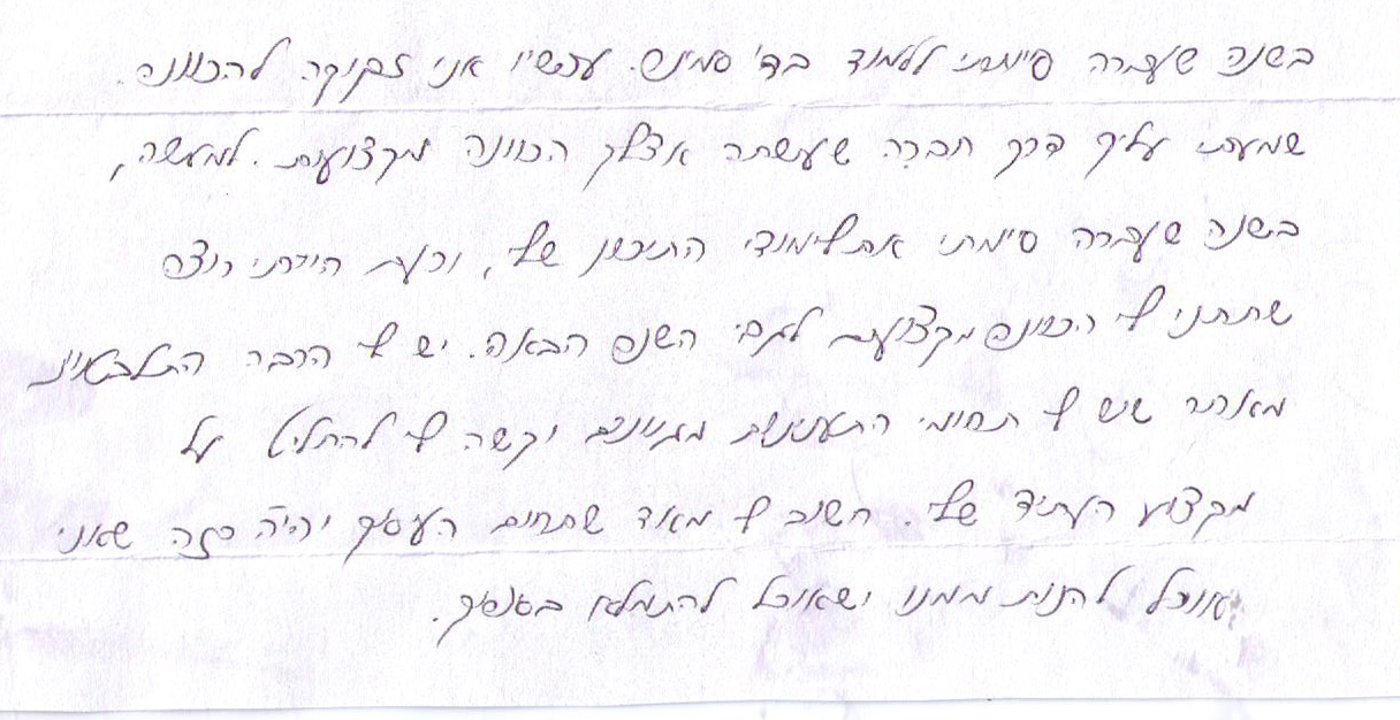 בשנה שעברה סיימתי ללמוד בבי"ס סמינר. עכשיו אני זקוקה להכוונה.
שמעתי עליך דרך חברה שעשתה אצלך הכוונה מקצועית. למעשה,
בשנה שעברה סיימתי את לימודי התיכון שלי, וכעת הייתי רוצה
שתתני לי הכוונה מקצועית לגבי השנה הבאה. יש לי הרבה התלבטויות
מאחר שיש לי תחומי התעניינות מגוונים וקשה לי להחליט על
מקצוע העתיד שלי. חשוב לי מאד שתחום העיסוק יהיה כזה שאני
אוכל להנות ממנו ושאוכל להתמלא בסיפוק.